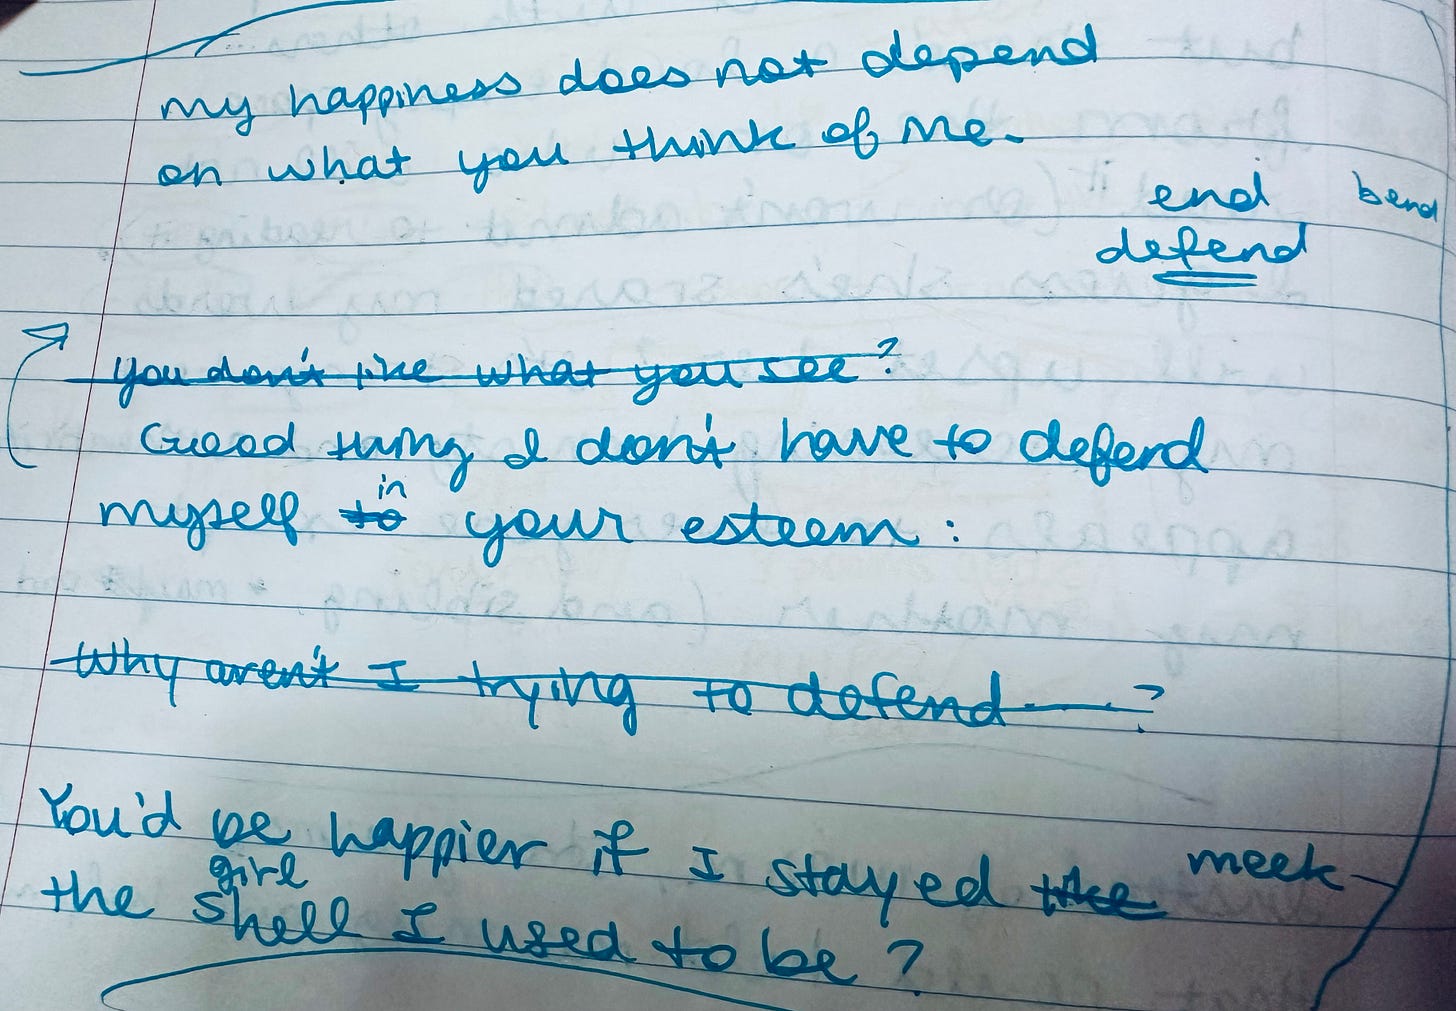 my happiness does not depend
on what you think of me.
end bend
defend
you don't like what you see?
Good thing I don't have to defend
myself to in your esteem:
Why aren't I trying to defend ?
You'd be happier if I stayed the meek
girl
the shell I used to be?